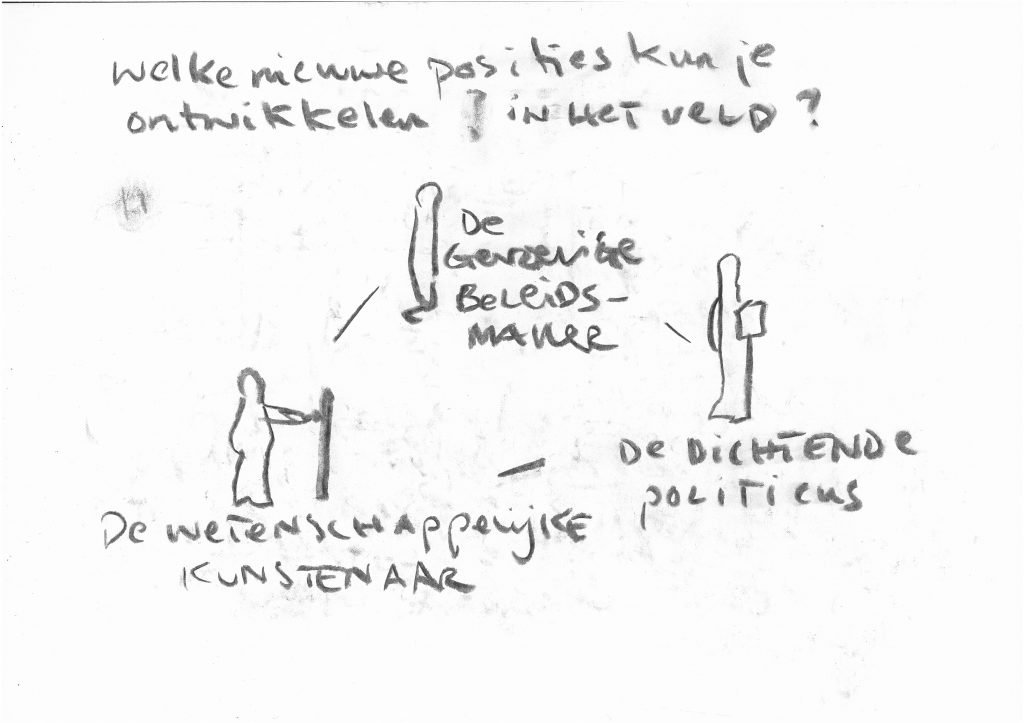 welke nieuwe posities kun je
ontwikkelen ? in HET VELD ?
De
Gevoelige
BeLeiDS-
MAKER
De DICHTENDE
POLITICUS
De WETENSCHAPPELIJKE
KUNSTENAAR